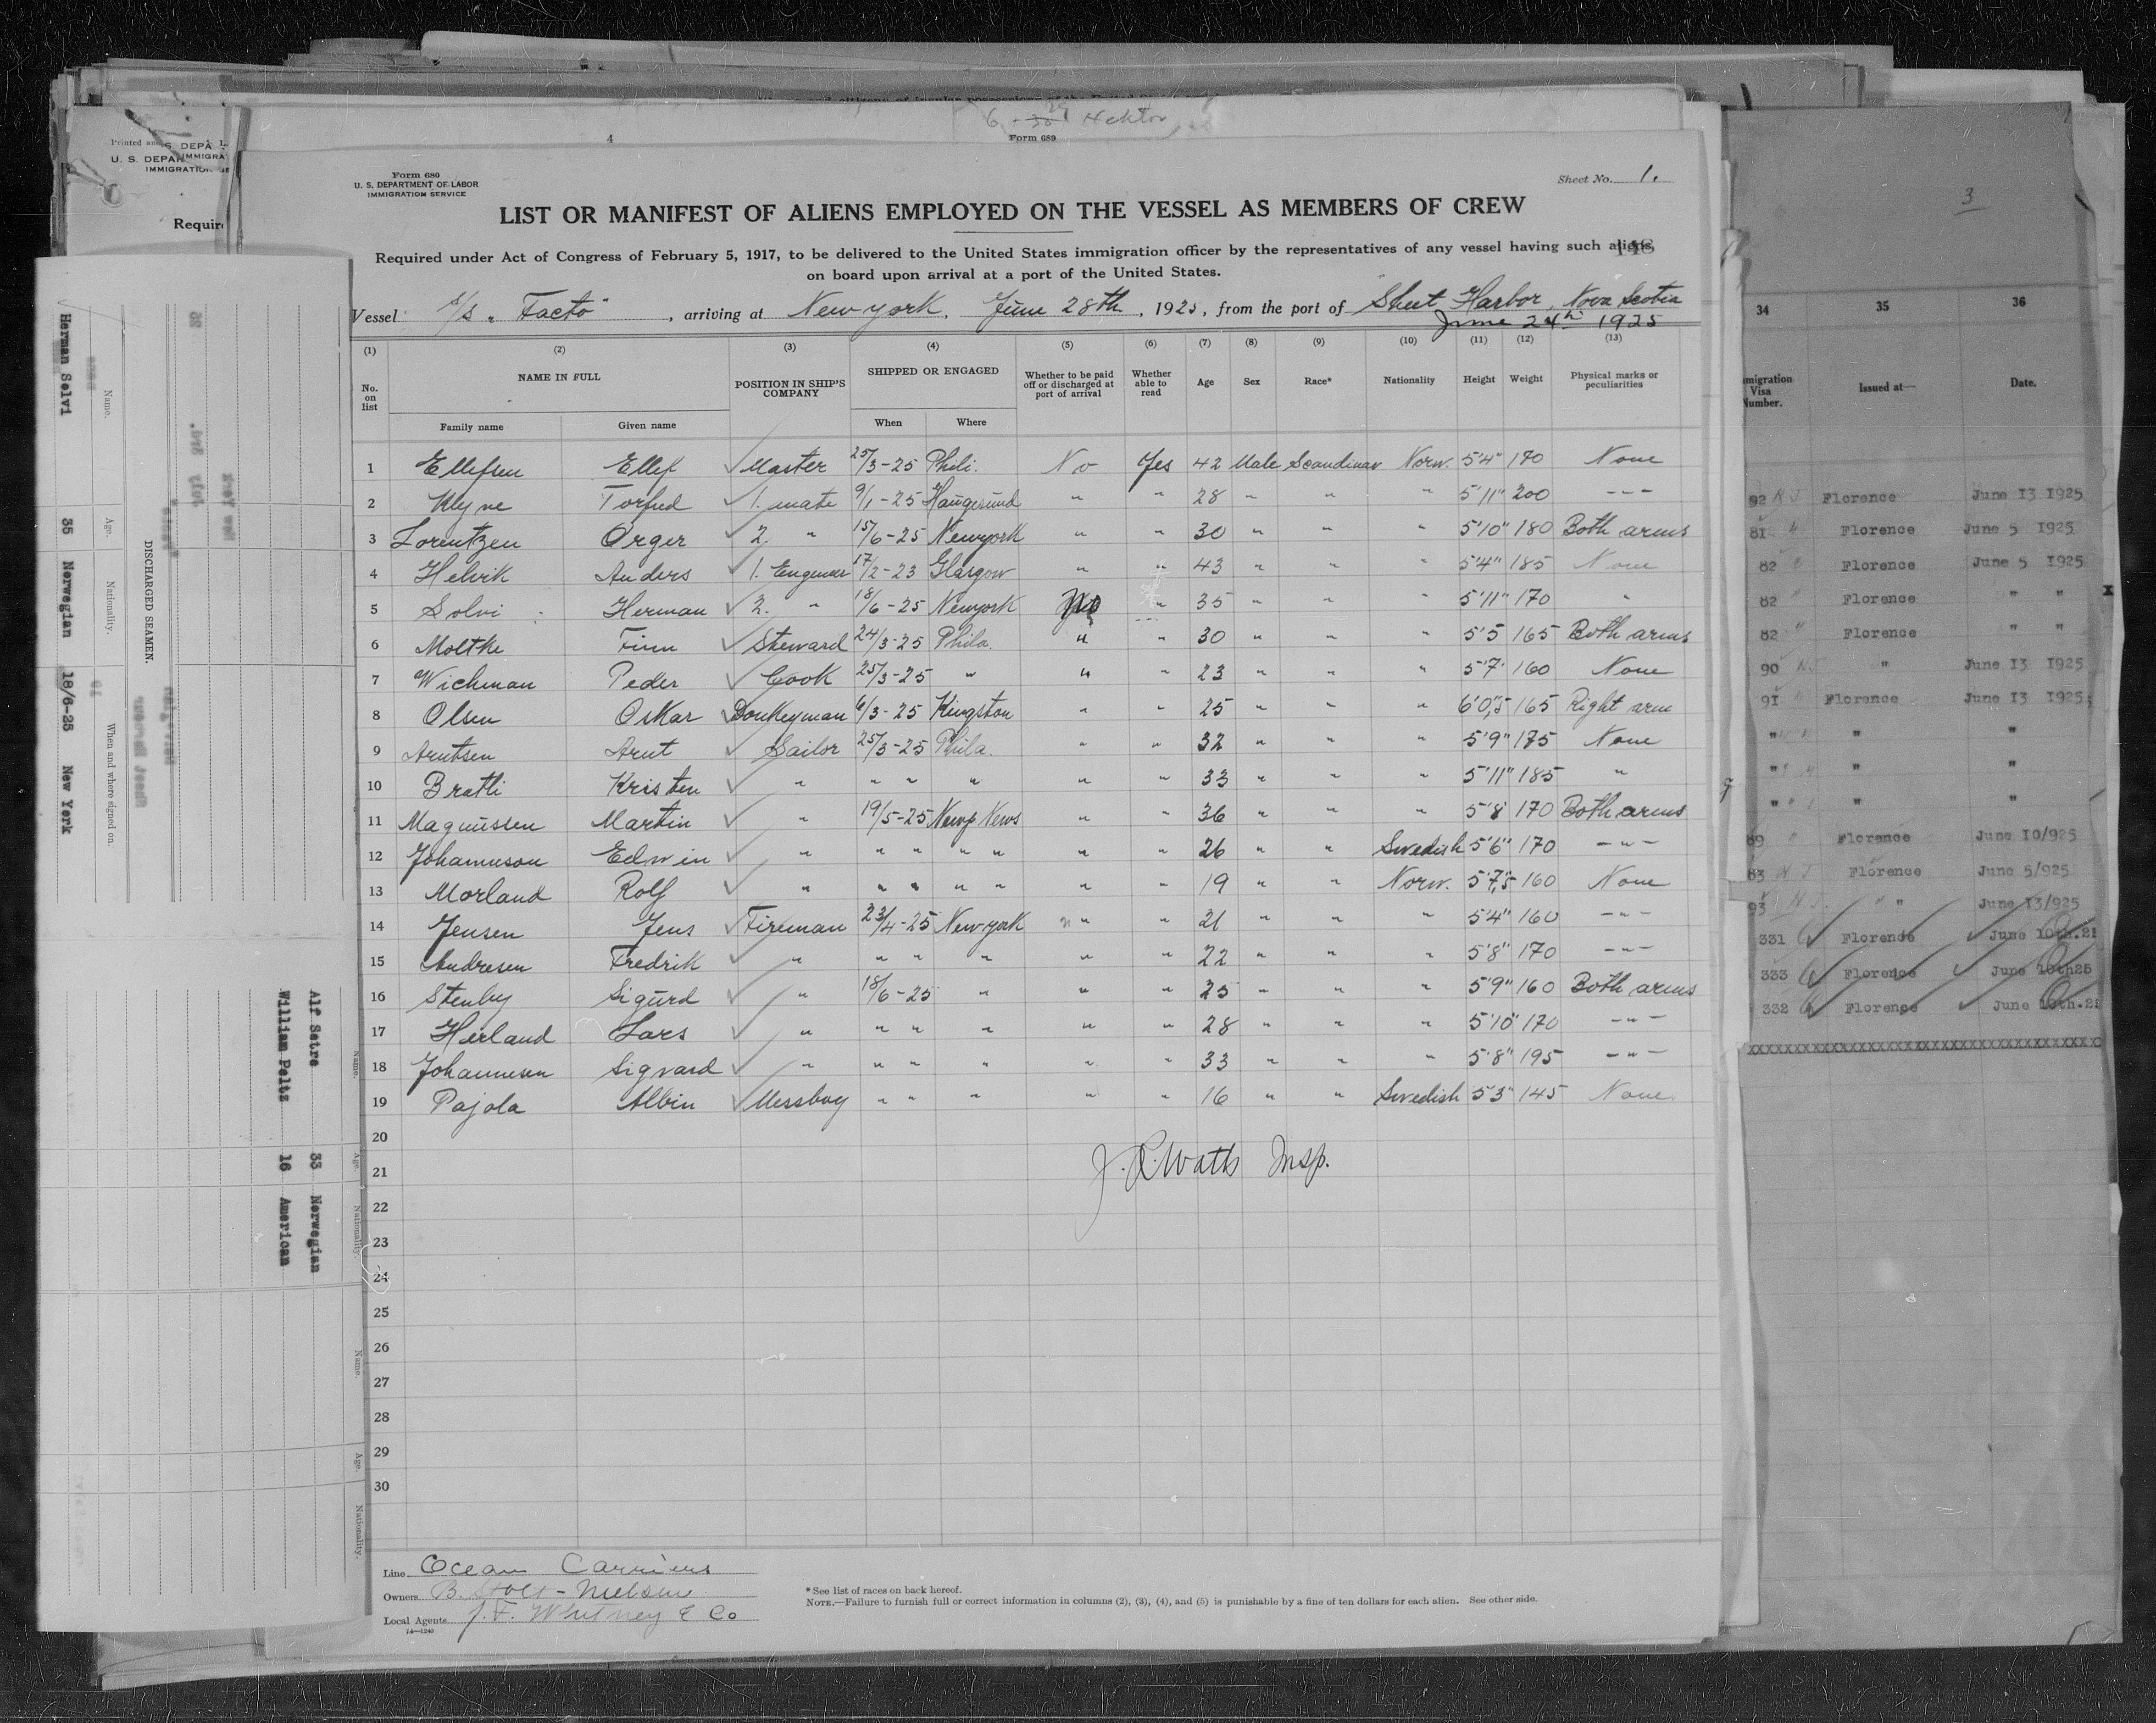 6 - 29 30 Hektor
4
Form 689
Printed and
S. DEPA
U. S. DEPAR
IMMIGRA
IMMIGRATION SE
Require
Form 680
U. S. DEPARTMENT OF LABOR
IMMIGRATION SERVICE
Sheet No. 1.
LIST OR MANIFEST OF ALIENS EMPLOYED ON THE VESSEL AS MEMBERS OF CREW
Required under Act of Congress of February 5, 1917, to be delivered to the United States immigration officer by the representatives of any vessel having such aliens
on board upon arrival at a port of the United States.
148
Vessel S/S "Facto" , arriving at New york , June 28th , 1925, from the port of Sheet Harbor, Nova Scotia
June 24th 1925
(1) (2) (3) (4) (5) (6) (7) (8) (9) (10) (11) (12) (13)
No. on list NAME IN FULL POSITION IN SHIP'S COMPANY SHIPPED OR ENGAGED Whether to be paid off or discharged at port of arrival Whether able to read Age Sex Race* Nationality Height Weight Physical marks or peculiarities
Family name Given name When Where
1 Ellefsen Ellef ✓ Master 25/3-25 Phili. No Yes 42 Male Scandinav Norw. 5'4" 170 None
2 Myne Torfred ✓ 1. mate 9/1-25 Haugesund " " 28 " " " 5'11" 200 ---
3 Lorentzen Orger ✓ 2. " 15/6-25 Newyork " " 30 " " " 5'10" 180 Both arms
4 Helvik Anders ✓ 1. Engeneer 17/2-23 Glasgow " " 43 " " " 5'4" 185 None
5 Solvi Herman ✓ 2. " 18/6-25 Newyork " 35 " " " 5'11" 170 "
6 Moltke Finn ✓ Steward 24/3-25 Phila. " " 30 " " " 5'5 165 Both arms
7 Wichman Peder ✓ Cook 25/3-25 " " " 23 " " " 5'7" 160 None
8 Olsen Oskar ✓ Donkeyman 6/3-25 Kingston " " 25 " " " 6'0,5 165 Right arm
9 Arntsen Arnt ✓ Sailor 25/3-25 Phila. " " 32 " " " 5'9" 175 None
10 Bratli Kristen ✓ " " " " " " 33 " " " 5'11" 185 "
11 Magnussen Martin ✓ " 19/5-25 Newp News " " 36 " " " 5'8 170 Both arms
12 Johannson Edwin ✓ " " " " " " " 26 " " Swedish 5'6" 170 -"-
13 Morland Rolf ✓ " " " " " " " 19 " " Norw. 5'7,5 160 None
14 Jensen Jens ✓ Fireman 23/4-25 New york " " 21 " " " 5'4" 160 -"-
15 Andresen Fredrik ✓ " " " " " " 22 " " " 5'8" 170 -"-
16 Stenby Sigurd ✓ " 18/6-25 " " " 25 " " " 5'9" 160 Both arms
17 Herland Lars ✓ " " " " " " 28 " " " 5'10" 170 -"-
18 Johannesen Sigvard ✓ " " " " " " 33 " " " 5'8" 195 -"-
19 Pajola Albin ✓ Messboy " " " " " 16 " " Swedish 5'3" 145 None
20
21
J. R. Watts Insp.
22
23
24
25
26
27
28
29
30
Line Ocean Carriers
Owners B. Stolt-Nielsen
Local Agents J. F. Whitney & Co
14—1240
*See list of races on back hereof.
NOTE.—Failure to furnish full or correct information in columns (2), (3), (4), and (5) is punishable by a fine of ten dollars for each alien. See other side.
DISCHARGED SEAMEN.
Name. Age. Nationality. When and where signed on.
Herman Selvi 35 Norwegian 18/6-25 New York
Name. Age. Nationality.
Alf Setre 33 Norwegian
William Peltz 16 American
Name. Age. Nationality.
3
34 35 36
mmigration Visa Number. Issued at— Date.
92 N J Florence June 13 1925
81 " Florence June 5 1925
82 " Florence June 5 1925
82 " Florence " "
82 " Florence " "
90 N J " June 13 1925
91 " Florence June 13 1925
" " "
" " "
" " "
89 " Florence June 10/925
83 N J Florence June 5/925
93 N J. " " June 13/925
331 Florence ✓ June 10th.25
333 Florence ✓ June 10th25
332 Florence ✓ June 10th.25
XXXXXXXXXXXXXXXXXXXXXXXXXXXXXXXXXXXXXX